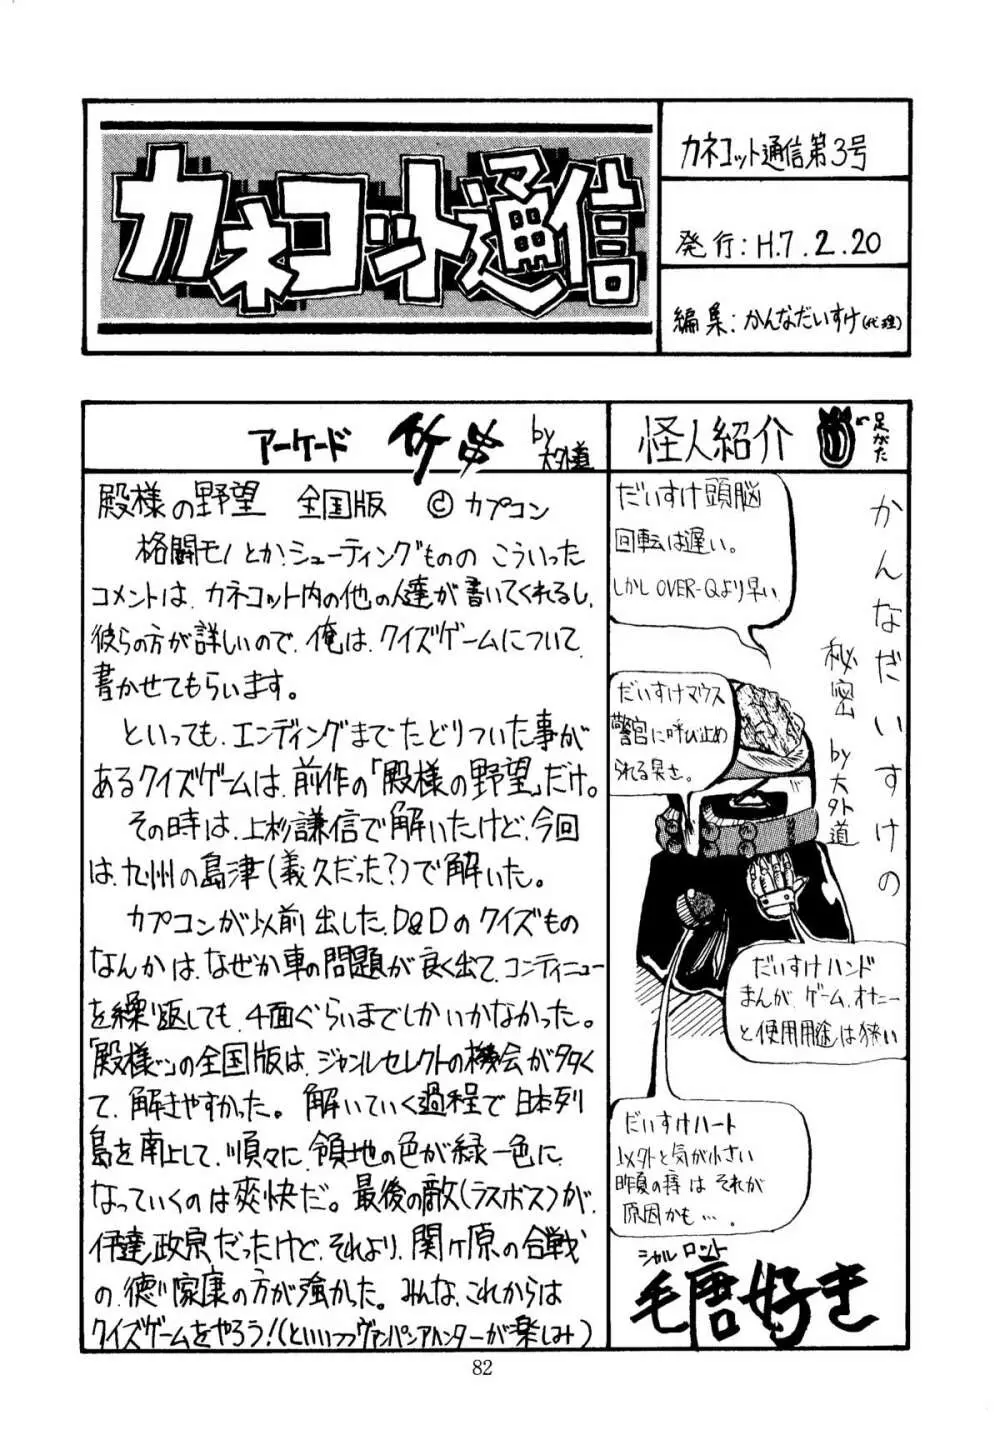 カネコット通信
カネコット通信第3号
発行：H.7.2.20
編集：かんなだいすけ(代理)
アーケード 竹串 by大外道
殿様の野望 全国版 ©カプコン
格闘モノとか、シューティングものの こういった
コメントは、カネコット内の他の人達が書いてくれるし、
彼らの方が詳しいので、俺は、クイズゲームについて
書かせてもらいます。
といっても、エンディングまでたどりついた事が
あるクイズゲームは、前作の「殿様の野望」だけ。
その時は、上杉謙信で解いたけど、今回
は、九州の島津(義久だった？)で解いた。
カプコンが以前出した、D&Dのクイズもの
なんかは、なぜか車の問題が良く出て、コンティニュー
を繰り返しても、4面ぐらいまでしかいかなかった。
「殿様〜」の全国版は、ジャンルセレクトの機会が多く
て、解きやすかった。解いていく過程で日本列
島を南上して、順々に領地の色が緑一色に
なっていくのは爽快だ。最後の敵(ラスボス)が、
伊達政宗だったけど、それより、関ヶ原の合戦
の、徳川家康の方が強かった。みんな、これからは
クイズゲームをやろう！(といいつつヴァンパイアハンターが楽しみ)
怪人紹介
足がた
かんなだいすけの
秘密 by大外道
だいすけ頭脳
回転は遅い。
しかしOVER-Qより早い
だいすけマウス
警官に呼び止め
られる臭さ。
だいすけハンド
まんが、ゲーム、オナニー
と使用用途は狭い
だいすけハート
以外と気が小さい
昨夏の痔は それが
原因かも…。
シャルロット
毛唐好き
82